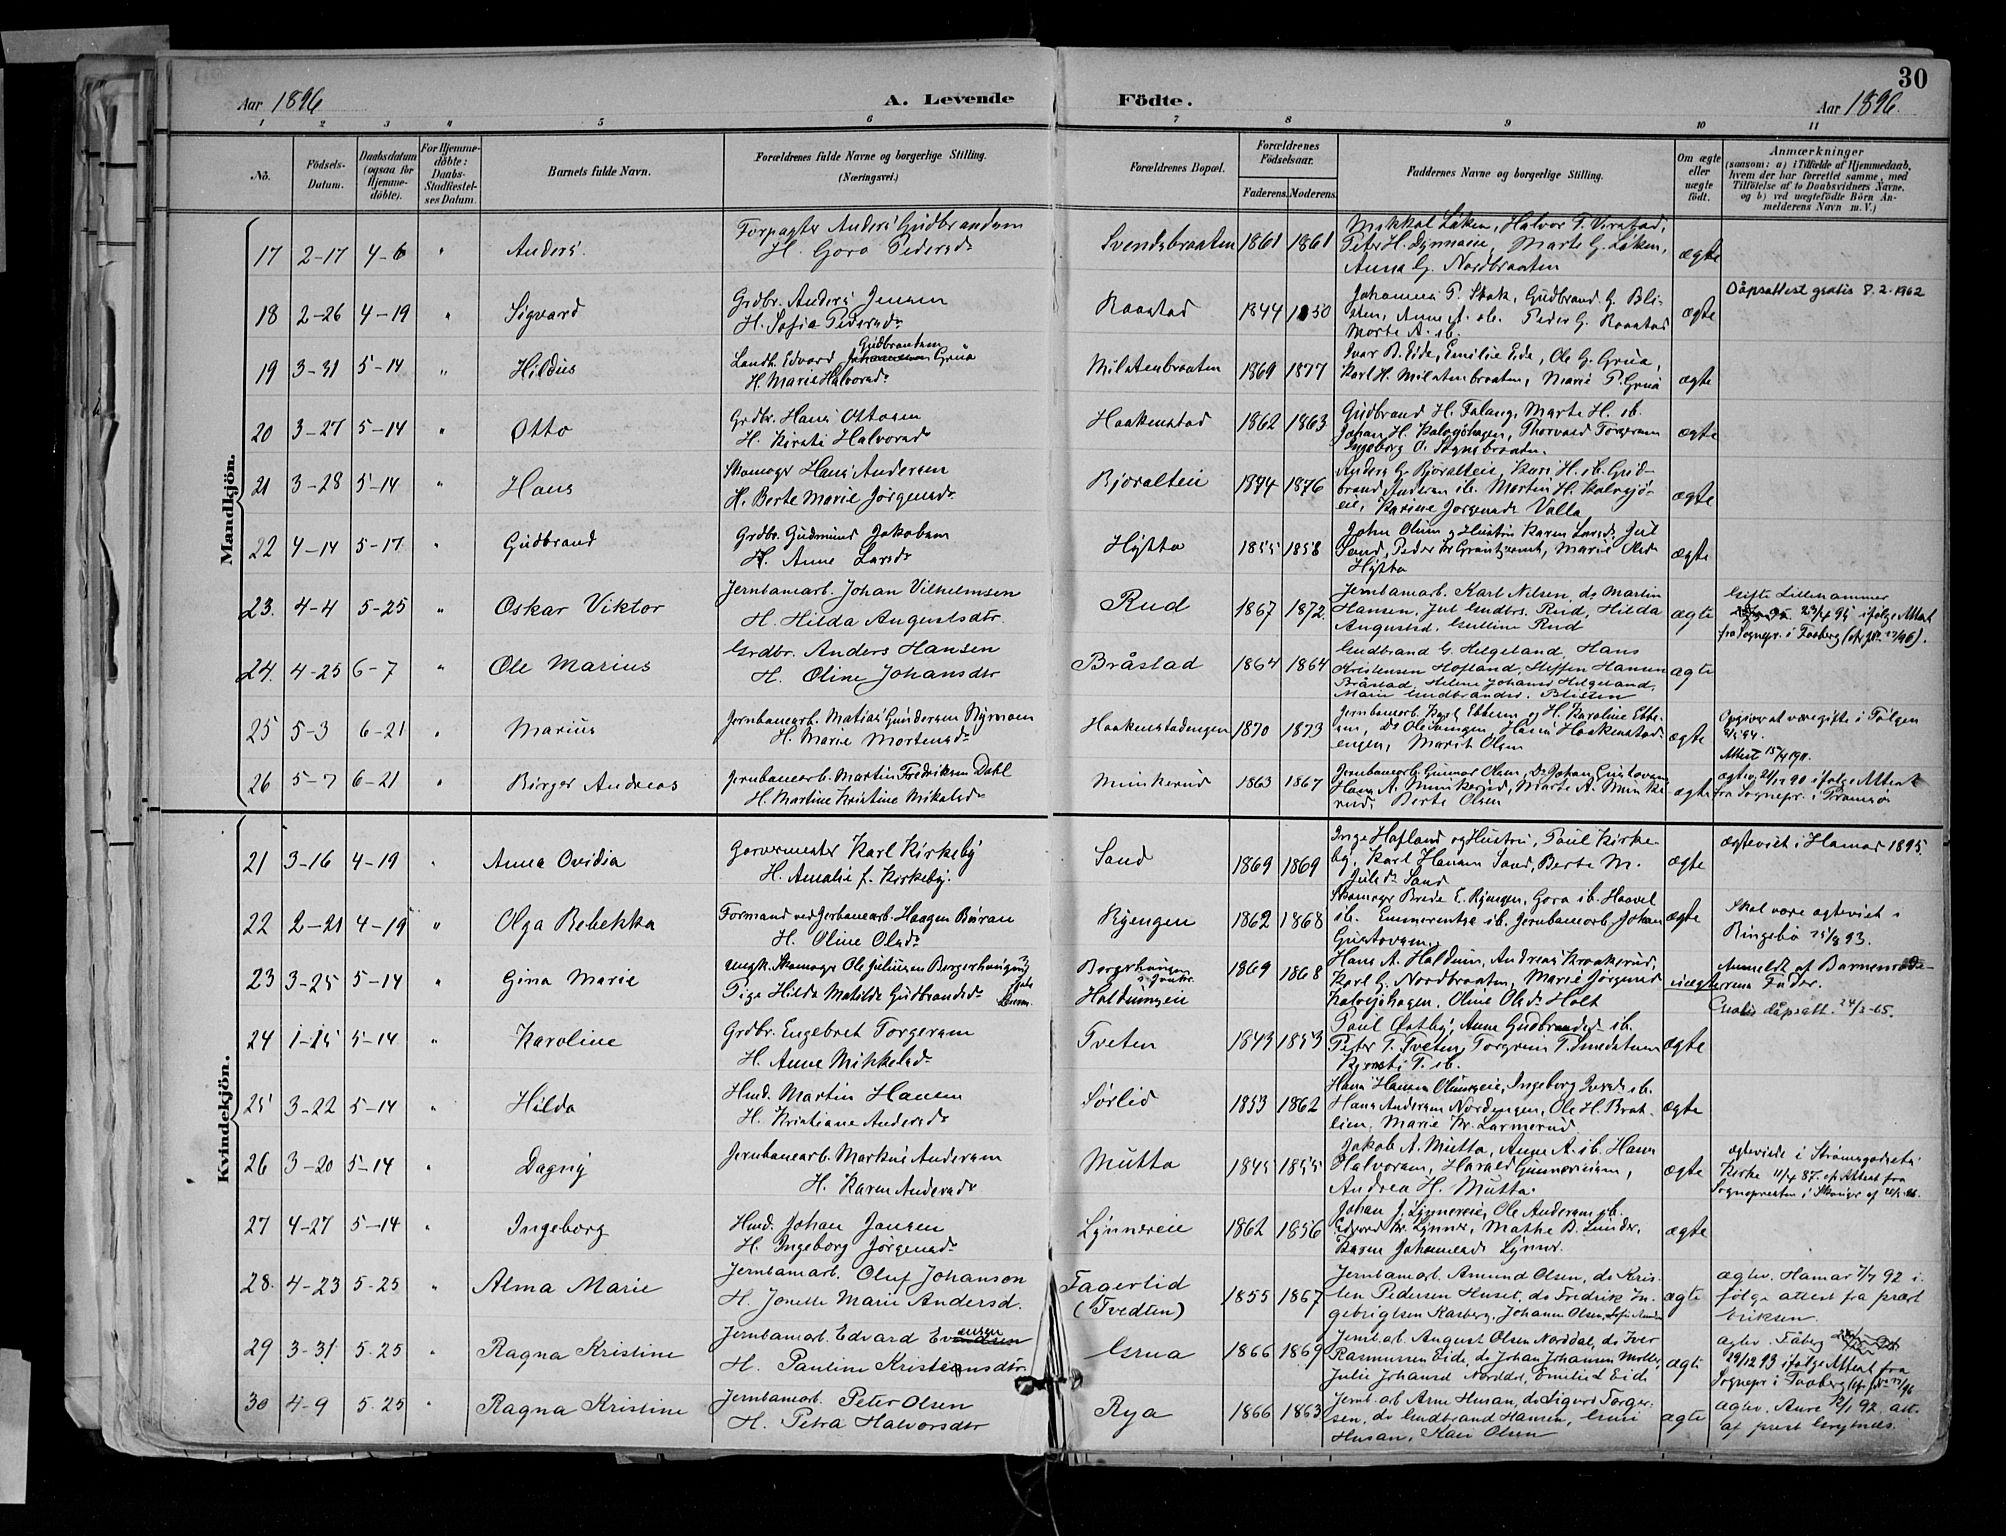 30
Aar 1896
A. Levende
Födte.
Aar 1896.
1 2 3 4 5 6 7 8 9 10 11
No.
Födsels-Datum.
Daabsdatum (ogsaa for Hjemmedöbte).
For Hjemmedöbte: Daabs-Stadfæstelses Datum.
Barnets fulde Navn.
Forældrenes fulde Navne og borgerlige Stilling.
(Næringsvei.)
Forældrenes Bopæl.
Forældrenes Födselsaar.
Faderens. Moderens.
Faddernes Navne og borgerlige Stilling.
Om ægte eller uægte födt.
Anmærkninger
(saasom: a) i Tilfælde af Hjemmedaab, hvem der har forrettet samme, med Tilföielse af to Daabsvidners Navne, og b) ved uægtefödte Börn Anmelderens Navn m. V.)
Mandkjön.
17 2-17 4-6 " Anders.
Forpagter Anders Gudbrandsen
H. Goro Pedersd
Svendsbraaten 1861 1861
Mikkal Løken, Halvor T.
Peter H. Marte G. Løken,
Anna G. Nordbraaten
ægte
18 2-26 4-19 " Sigvard
Grdbr. Anders Jensen
H. Sofia Pedersdr
Raastad 1844 1850
Johannes P. Stok, Gudbrand G. Bli-
sten, Anne A. sb. Peder G. Raastad
Marte A. sb.
ægte
Dåpsattest gratis 8.2.1962
19 3-31 5-14 " Hildus
Gudbrandsen
Landh. Edvard Johannesen Grua
H. Marie Halvorsdr
Milatenbraaten 1869 1877
Ivar B. Eide, Emilie Eide, Ole G. Grua,
Karl H. Milatenbraaten, Marie P. Grua
ægte
20 3-27 5-14 " Otto
Grdbr. Hans Ottosen
H. Kirsti Halvorsdr
Haakenstad 1862 1863
Gudbrand H. Falang, Marte H. sb.
Johan H. Kalvsjøhagen, Thorvald Torgersen
Ingeborg O. Sognsbraaten.
ægte
21 3-28 5-14 " Hans
Skomager Hans Andersen
H. Berte Marie Jørgensdr
Bjoralteie 1874 1876
Anders G. Bjøralteie, Kari H. sb. Gud-
brand Andersen sb. Martin H. Kalvsjø-
eie, Karine Jørgensd Valla
ægte
22 4-14 5-17 " Gudbrand
Grdbr. Gudmund Jakobsen
H. Anne Larsdr
Hytta 1855 1858
John Olsen og Hustru Karen Larsd, Jul
Sand, Peder Kr. Marie Olsd
Hytta
ægte
23. 4-4 5-25 " Oskar Viktor
Jernbanearb. Johan Vilhelmsen
H. Hilda Augustsdtr.
Rud 1867 1872.
Jernbanearb. Karl Nilsen, do Martin
Hansen, Jul Gudbrs. Rud, Hilda
Augustsd. Gulline Rud
ægte
Gifte Lillehammer
23/4 95 ifølge Attest
fra Sognepr. i Faaberg
24. 4-25 6-7 " Ole Marius
Grdbr. Anders Hansen
H. Oline Johansdtr
Bråstad 1864 1864
Gudbrand G. Helgeland, Hans
Kristensen Hofland, Steffen Hansen
Bråstad, Helene Johansd Helgeland,
Marie Gudbrandsd. Blisten
ægte
25 5-3 6-21 " Marius
Jernbanearb. Matias Gundersen Nymoen
H. Marie Mortensdr
Haakenstadengen 1870 1873
Jernbanearb. Karl Ebbesen og H. Karoline Ebbe-
sen, do Ole Svingen, Hans Haakenstad-
engen, Marit Olsen
ægte
Opgiver at være gifte i Fålgen
Attest 15/4 1911.
26 5-7 6-21 " Birger Andreas
Jernbanearb. Martin Fredriksen Dahl
H. Martine Kristine Mikalsdr
Munkerud 1863 1867
Jernbanearb. Gunnar Olsen, Do Johan Gustavsen,
Hans A. Munkerud, Marte A. Munke-
rud, Berte Olsen
ægte
ægtev. 90 ifølge Attest
fra Sognepr. i Tromsø
Kvindekjön.
21 3-16 4-19 " Anna Ovidia
Garvermester Karl Kirkeby
H. Amalie f. Kirkeby.
Sand 1869 1869
Inge Hafland og Hustru, Paul Kirke-
by, Karl Hansen Sand, Berte M.
Julsdr Sand
ægte
ægteviet i Hamar 1895.
22 2-21 4-19 " Olga Rebekka
Formand ved Jerbanearb. Haagen Buran
H. Oline Olsdr
Ryengen 1862 1868
Skomager Brede E. Ryengen, Gora sb. Haavel
sb. Emmerentse sb. Jernbanearb. Johan
Gustavsen
ægte
Skal være ægteviet i
Ringebo 25/3 93.
23 3-25 5-14 " Gina Marie
ungk. Skomager Ole Juliussen Bergerhaugen
Pige Hilda Matilde Gudbrandsdr
Bergerhaugen
Haldumseie 1869 1868
Hans A. Haldum, Andreas Kraakerud,
Karl G. Nordbraaten, Marie Jørgensd
Kalvsjøhagen, Oline Olsdr Holt
uægte
Anmeldt af Barnemode-
rens Fader.
Gratis dåpsatt. 24/2-65.
24 1-15 5-14 " Karoline
Grdbr. Engebret Torgersen
H. Anne Mikkelsd
Tveten 1843 1853
Paul Østby, Anne Gudbrandsd sb.
Peter T. Tveten, Torgrim T. Smedstuen
Kjersti T. sb.
ægte
25 3-22 5-14 " Hilda
Husd. Martin Hansen
H. Kristiane Andersdr
Sørlid 1853 1862
Hans Hansen Olumseie, Ingeborg sb.
Hans Andersen Nordengen, Ole H. Brat-
lien, Marie Kr. Larmerud
ægte
26 3-20 5-14 " Dagny
Jernbanearb. Markus Andersen
H. Karen Andersdr
Mutta 1845 1855
Jakob A. Mutta, Anne A. sb. Hans
Halvorsen, Harald Gunneriusen,
Andrea H. Mutta.
ægte
ægteviede i Strømsgodset
Kirke 11/4 87. efr Attest fra
Sognepresten i Skoger
27 4-27 5-14 " Ingeborg
Husd. Johan Jansen
H. Ingeborg Jørgensdr
Lynnereie 1862 1856
Johan J. Lynnereie, Ole Andersen sb.
Edvard Kr. Lynner, Mathe B. Lunder,
Karen Johannesd Lynner.
ægte
28. 4-23 5-25 " Alma Marie
Jernbanearb. Oluf Johanson
H. Jonette Marie Andersd.
Fagerlid
(Tvedten) 1855 1867
Jernbanearb. Amund Olsen, do Kris-
ten Pedersen Huset, do Fredrik In-
gebrigtsen Karsberg, Johann Olsen
ægte
ægtev. Hamar 7/7 92 i-
følge attest fra præst
Eriksen.
29 3-31 5.25 " Ragna Kristine
Jernbanearb. Edvard Evensen
H. Pauline Kristensdtr
Grua 1866 1869
Jernb.arb. August Olsen Norddal, do Iver
Rasmussen Eide, do Johan Johansen Moller,
Julie Johansd Norddal, Emilie Eide
ægte
ægtev. Fåberg
29/12 93 ifølge Attest fra
Sognepr. i Faaberg
30 4-9 5.25 " Ragna Kristine
Jernbanearb. Peter Olsen
H. Petra Halvorsdtr
Rya 1866 1863
Jernb.arb. Arne Husan, do Sigurd Torger-
sen, do Gudbrand Hansen, Guri
Husan, Kari Olsen
ægte
ægtev. Aure 12/1 92. att.
af præst